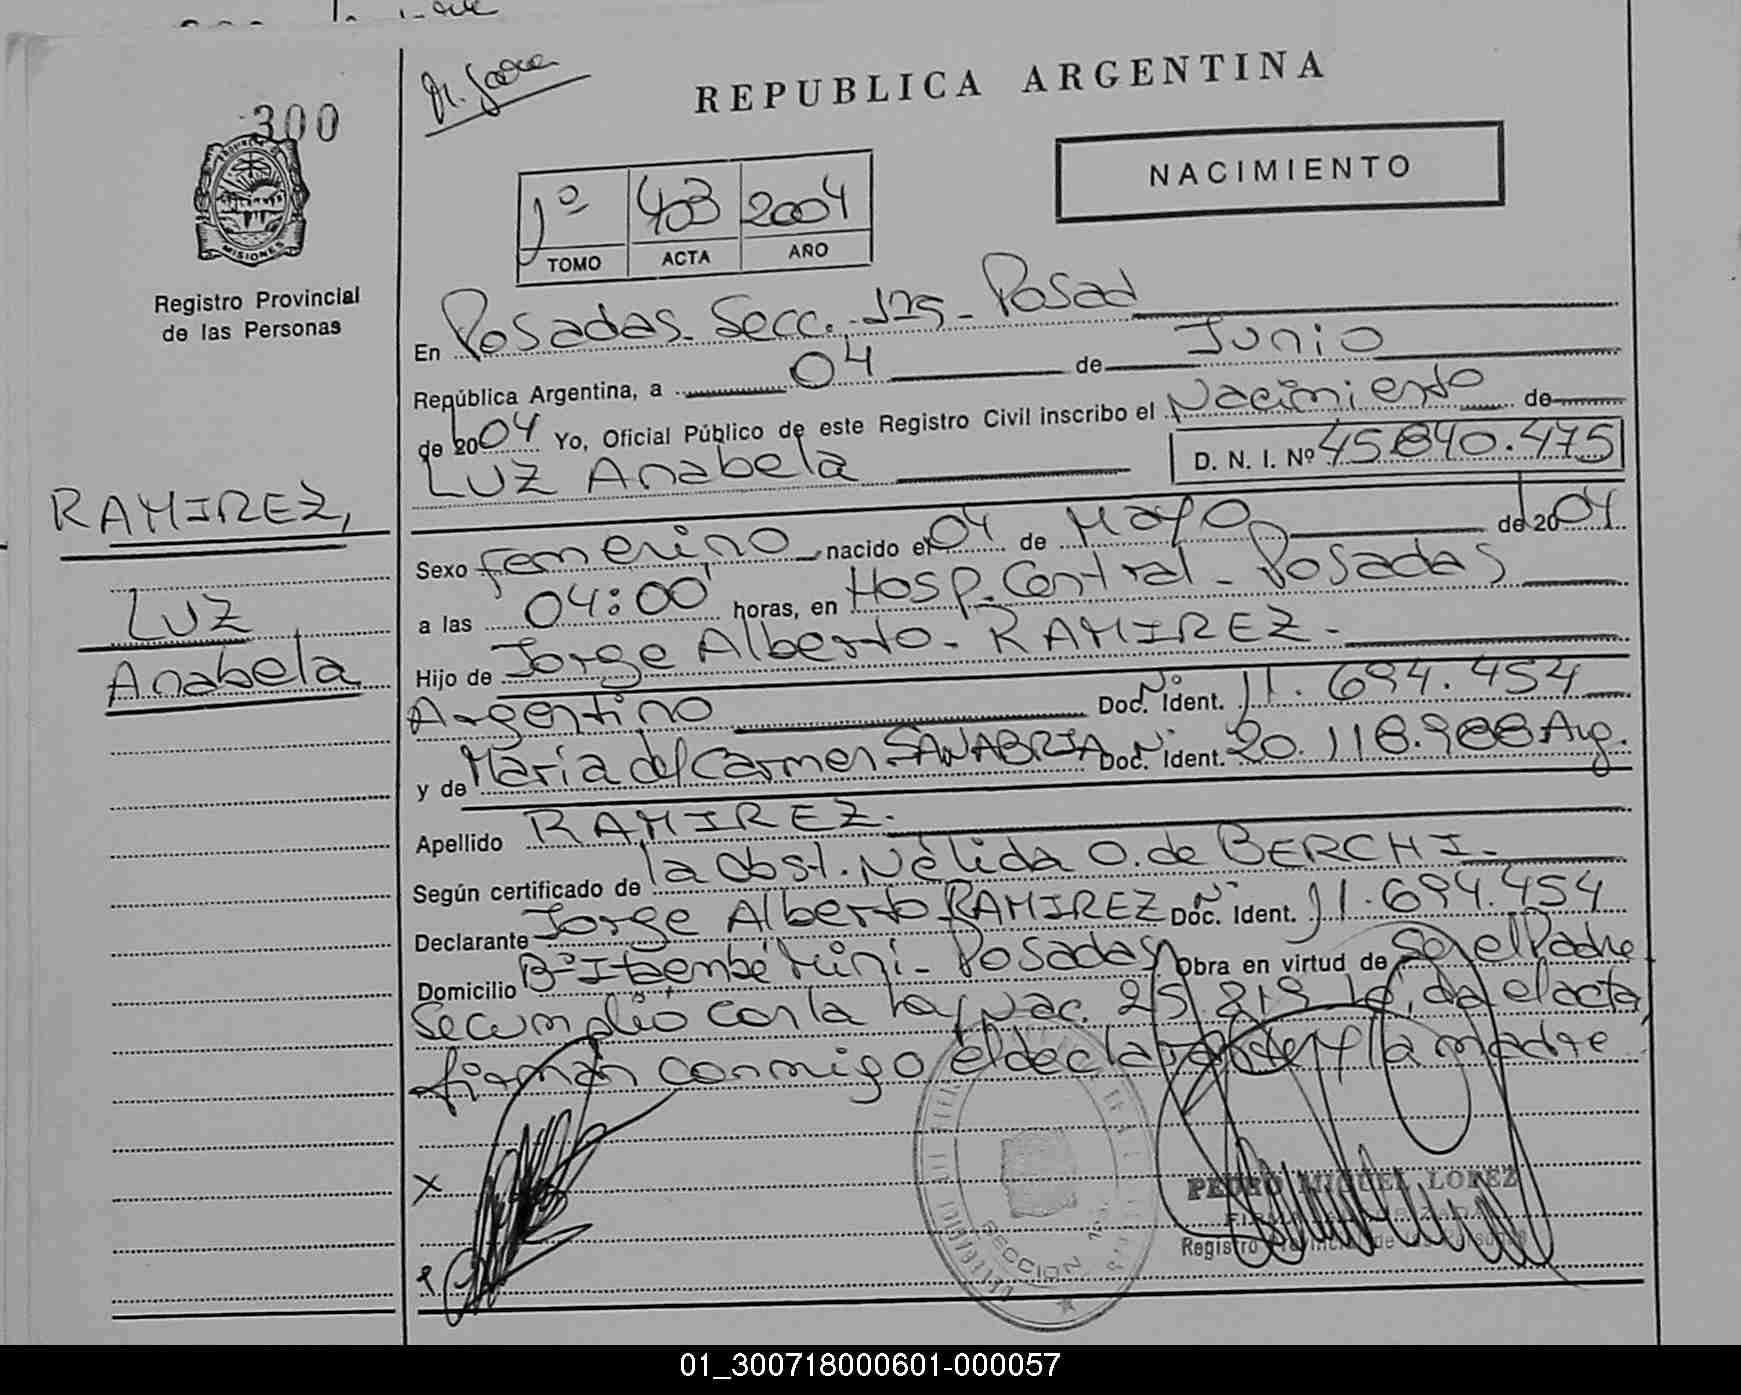 300
REPUBLICA ARGENTINA
NACIMIENTO
1º 403 2004
TOMO ACTA AÑO
MISIONES
Registro Provincial
de las Personas
En Posadas. Secc. 1ra - Posad
República Argentina, a 04 de Junio
de 2004 Yo, Oficial Público de este Registro Civil inscribo el Nacimiento de
LUZ Anabela D. N. I. Nº 45.840.475
RAMIREZ,
LUZ
Anabela
Sexo femenino nacido el 04 de Mayo de 2004
a las 04:00' horas, en Hosp. Central - Posadas
Hijo de Jorge Alberto - RAMIREZ -
Argentino Doc. Nº Ident. 11.694.454
y de Maria del Carmen SANABRIA Doc. Nº Ident. 20.118.988 Arg.
Apellido RAMIREZ.
Según certificado de la obst. Nélida O. de BERCHI.
Declarante Jorge Alberto RAMIREZ Doc. Nº Ident. 11.694.454
Domicilio Bº Itaembé Mini - Posadas Obra en virtud de Ser el Padre
Se cumplió con la Ley Nac. 25.819 el acta,
firman conmigo el declarante y la madre
X
SECCION 1ra
PEDRO MIGUEL LOPEZ
Registro Provincial de las Personas
01_300718000601-000057